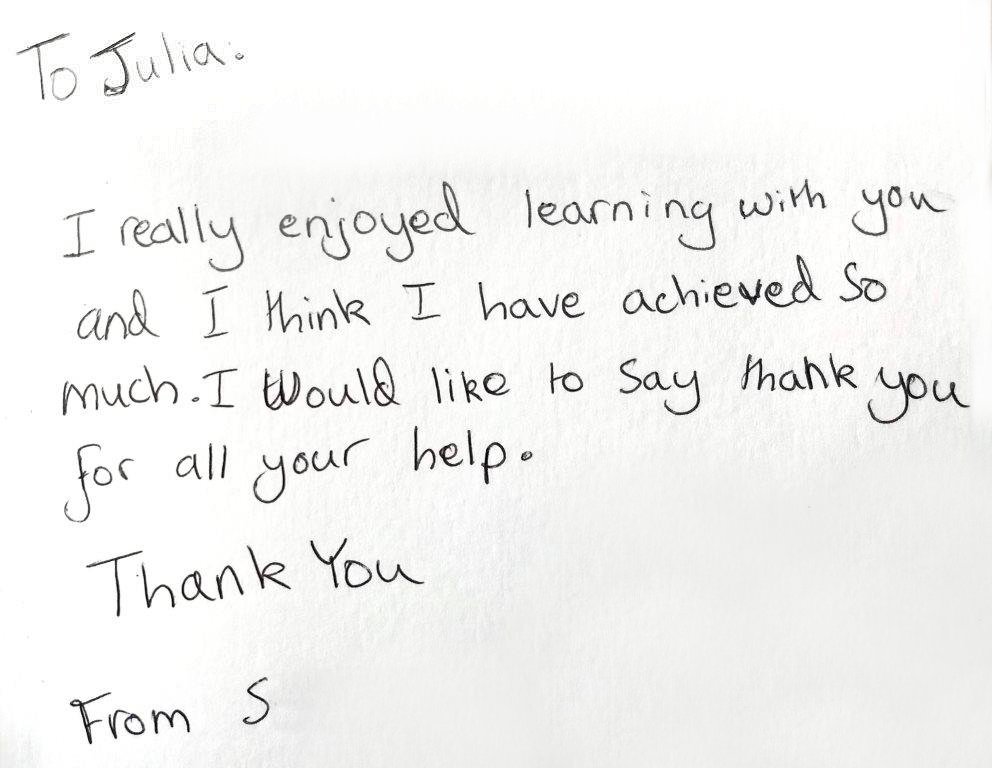 To Julia.
I really enjoyed learning with you
and I think I have achieved so
much. I would like to say thank you
for all your help.
Thank You
From S